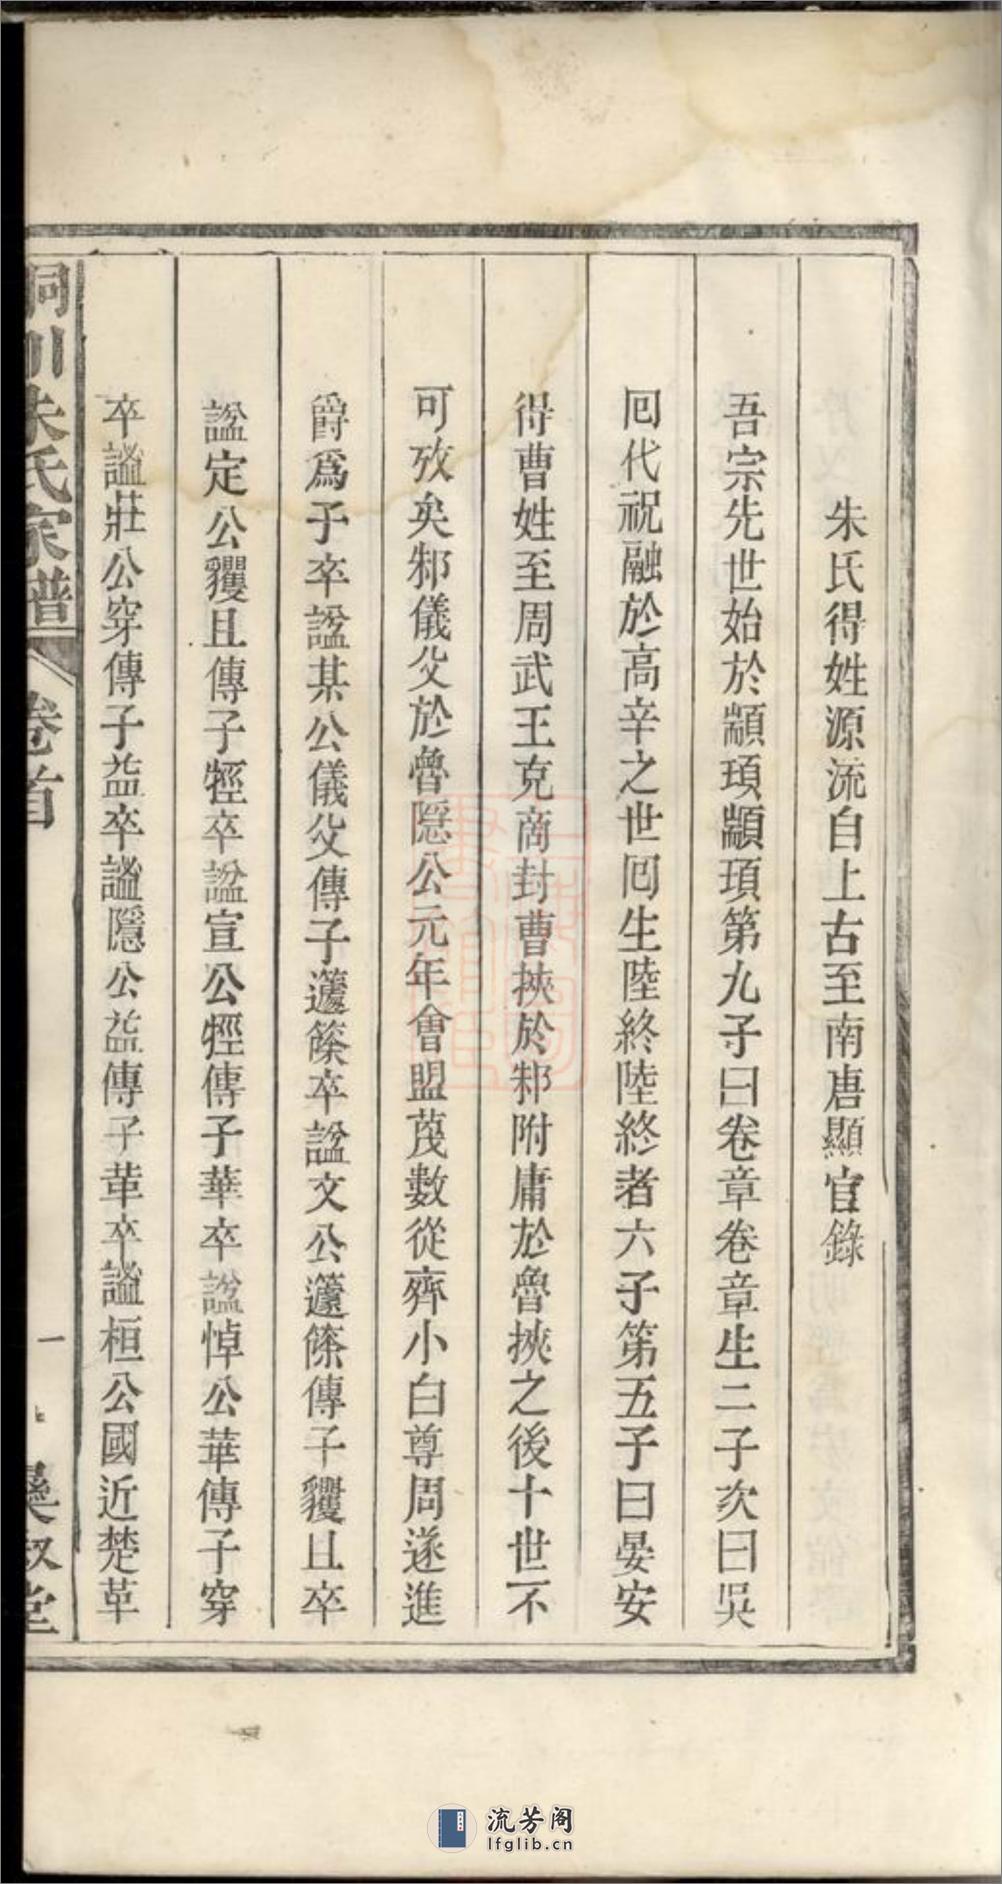 朱氏得姓源流自上古至南唐顯官錄
吾宗先世始於顓頊顓頊第九子曰卷章卷章生二子次曰吳
回代祝融於高辛之世回生陸終陸終者六子第五子曰晏安
得曹姓至周武王克商封曹挾於邾附庸於魯挾之後十世不
可攷矣邾儀父於魯隱公元年會盟蔑數從齊小白尊周遂進
爵爲子卒諡某公儀父傳子蘧篨卒諡文公蘧篨傳子貜且卒
諡定公貜且傳子牼卒諡宣公牼傳子華卒諡悼公華傳子穿
卒謚莊公穿傳子益卒謚隱公益傳子革卒謚桓公國近楚革
川朱氏家譜
卷首
一
堂
流芳阁
lfglib.cn